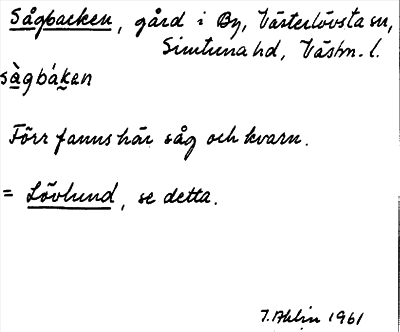 Sågbacken, gård i By, Västerlövsta sn,
Simtuna hd, Västm. l.
sàgbákan
Förr fanns här såg och kvarn.
= Lövlund, se detta.
I. Ahlin 1961